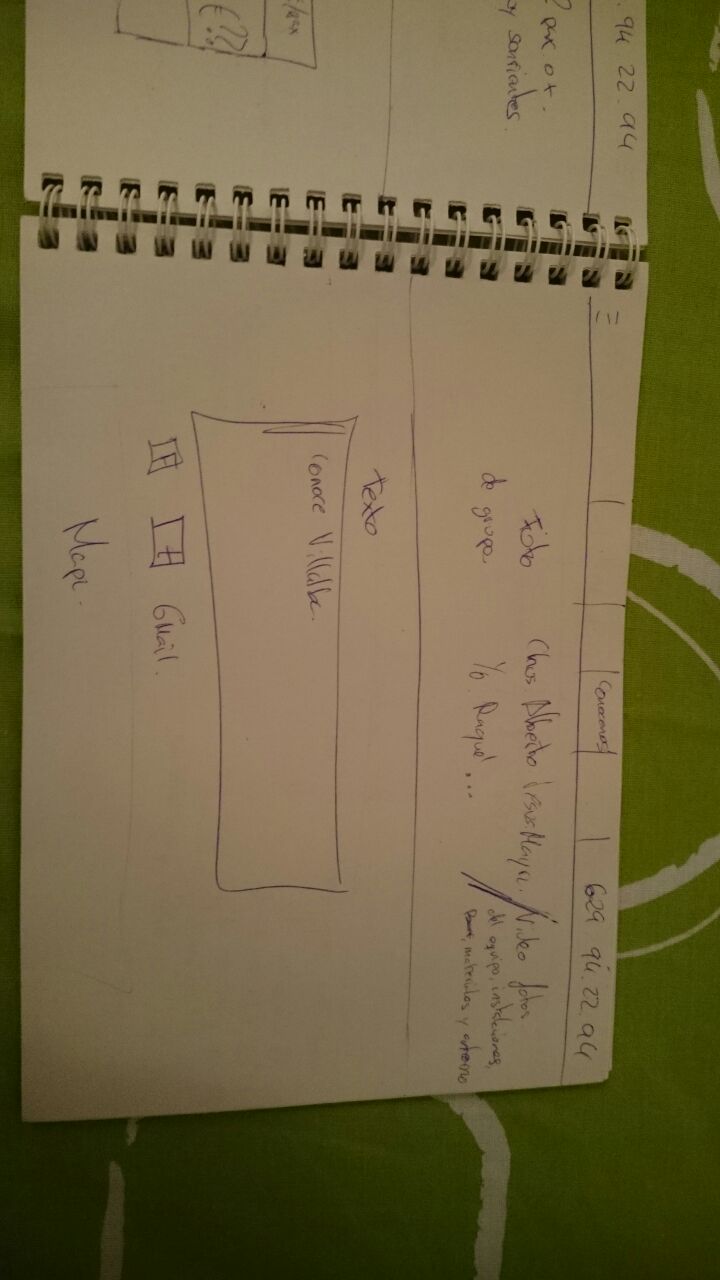 94 22.94
? por ot.
y sonrientes.
€??
Conócenos!
629 94.22.94
Foto
de grupo
Chus. Alberto Jesus Mayra.
Yo. Raquel...
// Video fotos
del equipo, instalaciones,
materiales y entorno
Texto
Conoce Villalba.
Gmail.
Mapa.